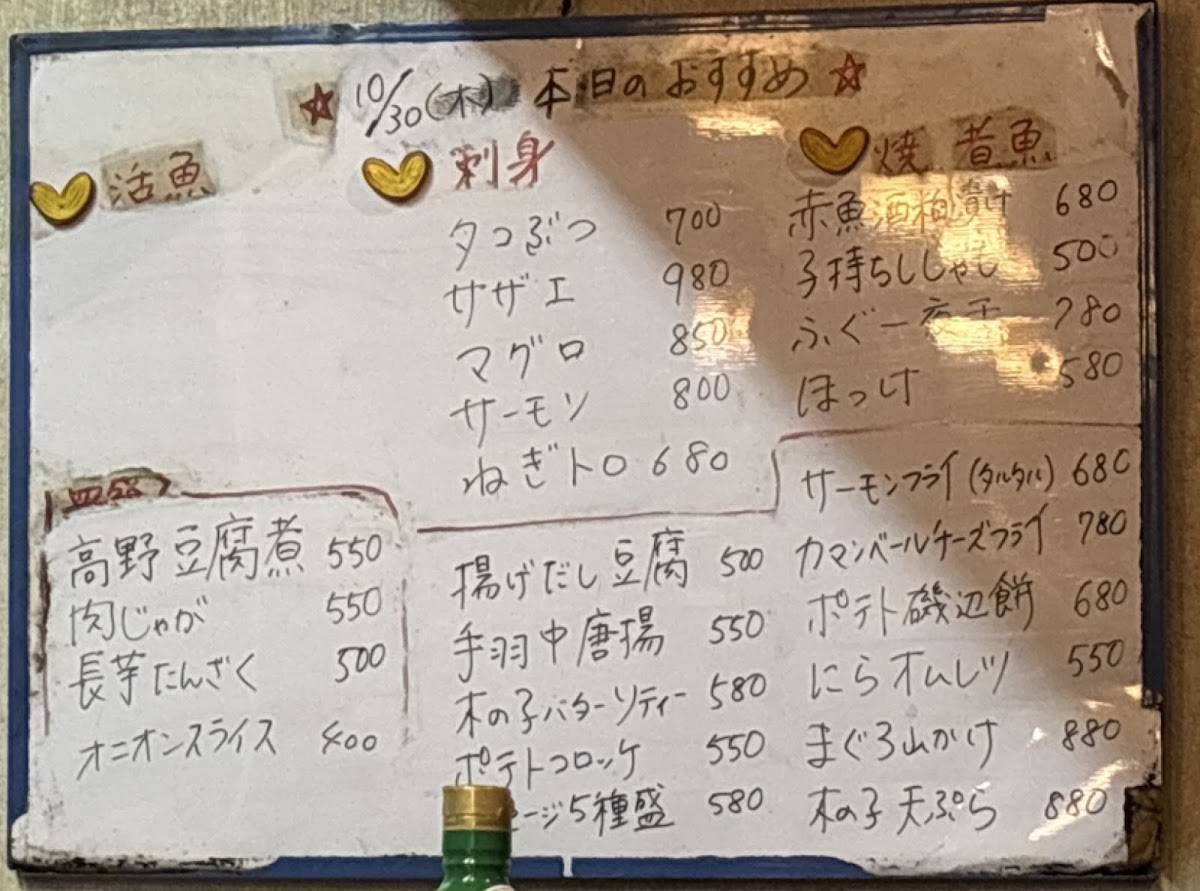 ☆ 10/30(木) 本日のおすすめ ☆
活魚
刺身
タコぶつ 700
サザエ 980
マグロ 850
サーモン 800
ねぎトロ 680
焼 煮魚
赤魚酒粕漬け 680
子持ちししゃも 500
ふぐ一夜干 780
ほっけ 580
高野豆腐煮 550
肉じゃが 550
長芋たんざく 500
オニオンスライス 400
揚げだし豆腐 500
手羽中唐揚 550
木の子バターソティー 580
ポテトコロッケ 550
ージ5種盛 580
サーモンフライ(タルタル) 680
カマンベールチーズフライ 780
ポテト磯辺餅 680
にらオムレツ 550
まぐろ山かけ 880
木の子天ぷら 880